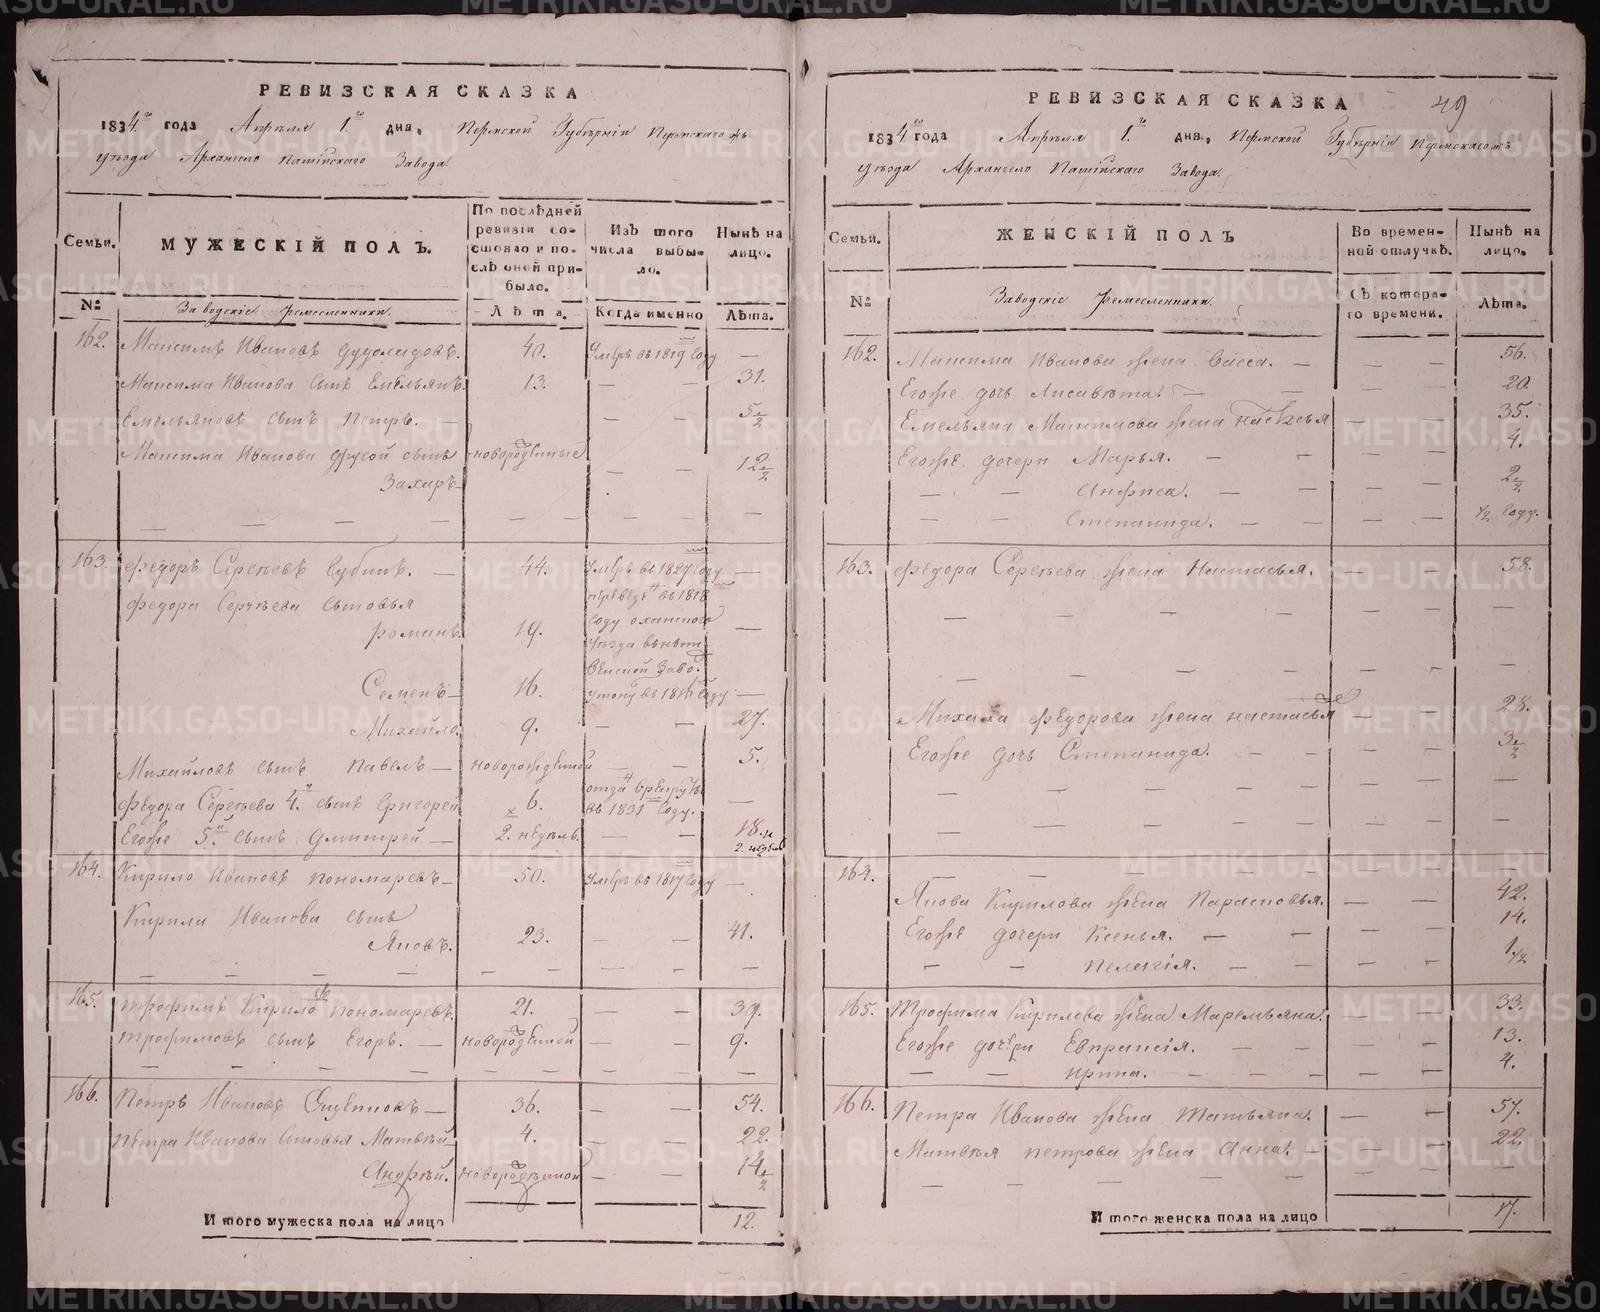 РЕВИЗСКАЯ СКАЗКА
1834го года Апрѣля 1го дня, Пермской Губернiи Пермскагожъ
уѣзда Архангело Пашiйскаго Завода
Семьи.
МУЖЕСКIЙ ПОЛЪ.
По послѣдней ревизiи состояло и послѣ оной прибыло.
Изъ того числа выбыло.
Нынѣ на лицо.
№
Заводскiе Ремесленники.
Лѣта.
Когда именно
Лѣта.
162. Максимъ Ивановъ 40. Умеръ въ 1819 году —
Максима Иванова сынъ Емельянъ. 13. — — 31.
Емельяновъ сынъ Петръ. — — — 5 1/2
Максима Иванова другой сынъ новорожденные
Захаръ — — — 12 1/2
163. Федоръ Сергѣевъ Губинъ. — 44. Умеръ въ 1827 году —
Федора Сергѣева сыновья
Романъ. 19. переведенъ въ 1818 году оханскаго уѣзда —
Семенъ — 16. въ 1816 году —
Михайло 9. — — 27.
Михайловъ сынъ Павелъ — новорожденной — — 5.
Федора Сергѣева 4й сынъ Григорей 6. отданъ в рекруты въ 1831 году. —
Егоже 5й сынъ Дмитрей — 2. недѣль — — 18. и 2. недѣль
164. Кирило Ивановъ Пономаревъ — 50. Умеръ въ 1817 году —
Кирила Иванова сынъ
Яковъ. 23. — — 41.
165. Трофимъ Кирилов Пономаревъ. 21. — — 39.
Трофимовъ сынъ Егоръ. — новорожденной — — 9.
166. Петръ Ивановъ Ощепковъ — 36. — — 54.
Петра Иванова сыновья Матвѣй 4. — — 22.
Андрѣй. новорожденной — — 14 1/2
Итого мужеска пола на лицо 12.
РЕВИЗСКАЯ СКАЗКА 49
1834го года Апрѣля 1го дня, Пермской Губернiи Пермскагожъ
уѣзда Архангело Пашiйскаго Завода.
Семьи.
ЖЕНСКIЙ ПОЛЪ
Во временной отлучкѣ.
Нынѣ на лицо.
№
Заводскiе Ремесленники.
Съ котораго времени.
Лѣта.
162. Максима Иванова жена Васса. — — — 56.
Егоже дочь Лисавѣта. — — 20.
Емельяна Максимова жена Настасья — — 35.
Егоже дочери Марья. — — — — 4.
— — Анфиса. — — — — 2 1/2
— — Степанида. — — — — 1/2 году.
163. Федора Сергѣева жена Настасья. — — 58.
Михаила Федорова жена Настасья — — 28.
Егоже дочь Степанида. — — — — 3 1/2
164. — — — — — —
Якова Кирилова жена Парасковья. — — 42.
Егоже дочери Ксенья. — — — — 14.
— — Пелагiя. — — — — 1 1/2
165. Трофима Кирилова жена Маремьяна. — — 33.
Егоже дочери Евпраксiя. — — — — 13.
— — Ирина. — — — — 4.
166. Петра Иванова жена Татьяна. — — 57.
Матвѣя Петрова жена Анна. — — — 22.
Итого женска пола на лицо 17.
METRIKI.GASO-URAL.RU